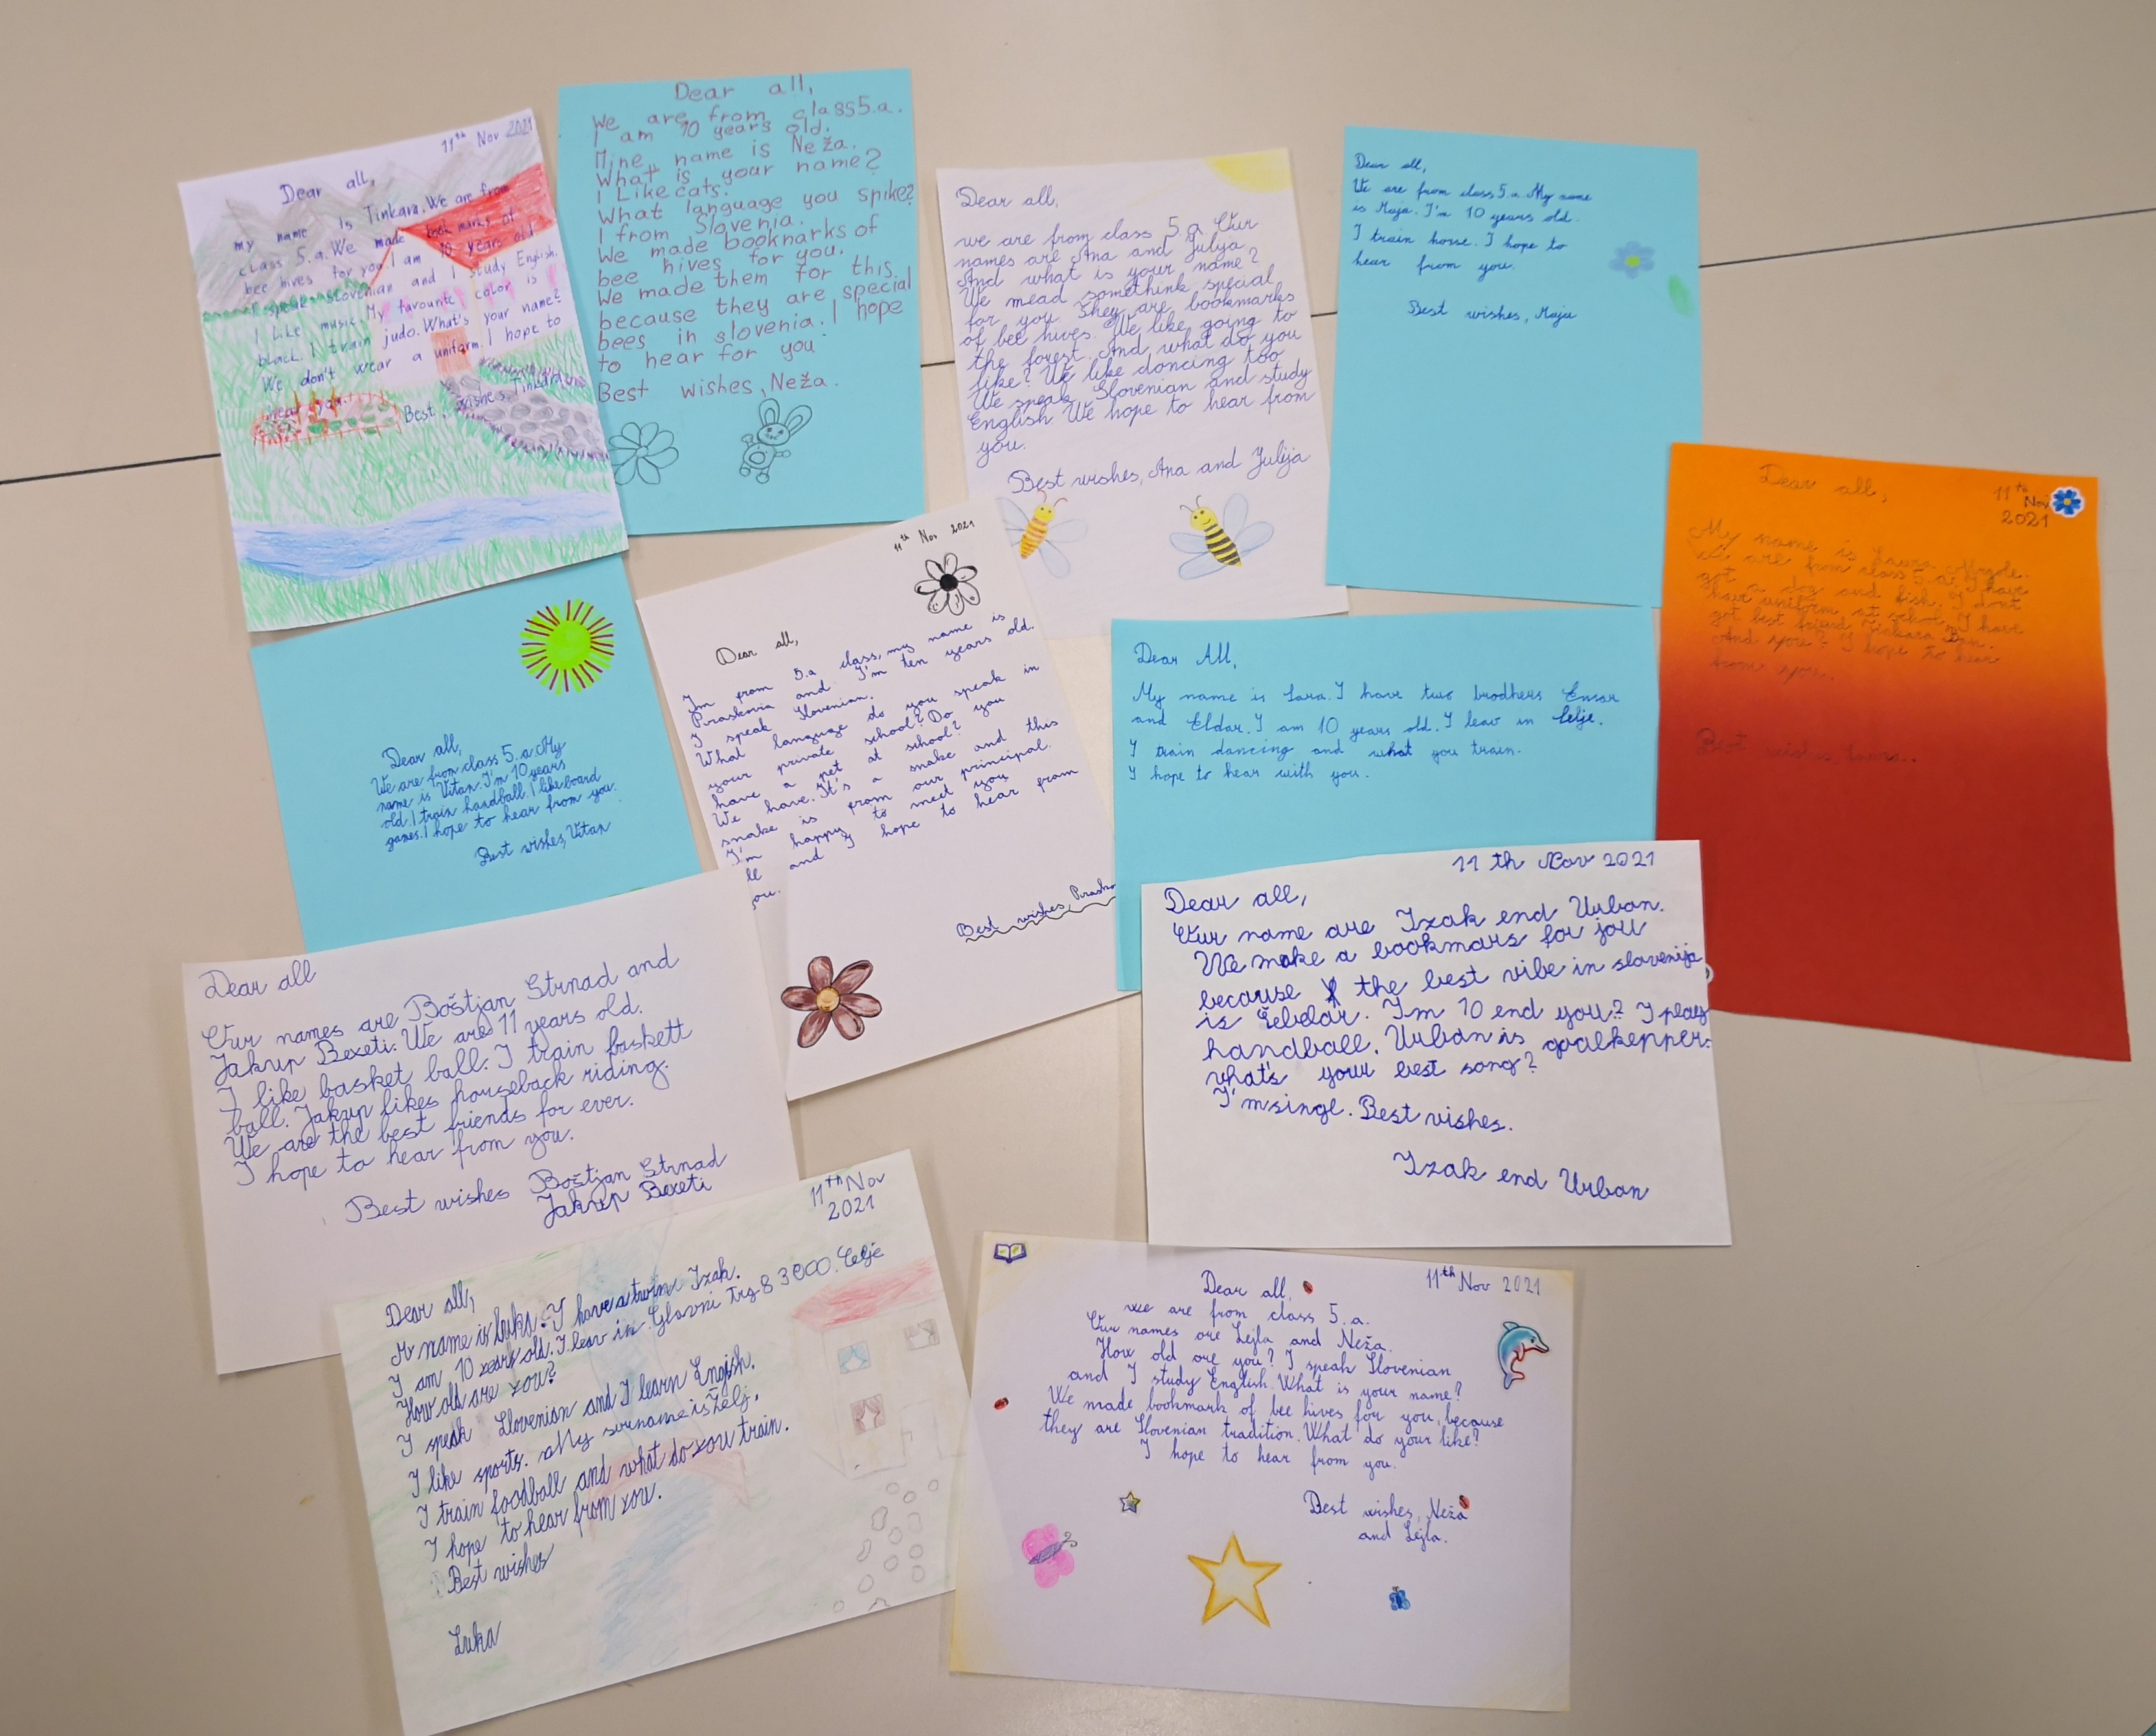 11th Nov 2021
Dear all,
my name Is Tinkara. We are from
class 5.a. We made book marks of
bee hives for you. I am 10 years old.
I speak Slovenian and I study English.
I Like music. My favourite color is
black. I train judo. What's your name?
We don't wear a uniform. I hope to
hear you.
Best wishes Tinkara
Dear all,
We are from class5.a.
I am 10 years old.
Mine name is Neža.
What is your name?
I Like cats.
What language you spike?
I from Slovenia.
We made booknarks of
bee hives for you.
We made them for this
because they are special
bees in slovenia. I hope
to hear for you
Best wishes, Neža.
Dear all,
we are from class 5.a. Our
names are Ana and Julija
And what is your name?
We mead somethink special
for you. They are bookmarks
of bee hives. We like going to
the forest. And what do you
like? We like doncing too
We speak Slovenian and study
English. We hope to hear from
you.
Best wishes, Ana and Julija
Dear all,
We are from class 5.a. My name
is Maja. I'm 10 years old.
I train horse. I hope to
hear from you.
Best wishes, Maja
Dear all,
11th Nov
2021
My name is Laura
We are from class 5.a. I have
got a dog and fish. I dont
have uniform at school. I have
got best friend Tinkara
And you? I hope to hear
from you.
Best wishes,
Dear all,
We are from class 5.a. My
name is Vitan. I'm 10 years
old. I train handball. I like board
games. I hope to hear from you.
Best wishes, Vitan
11th Nov 2021
Dear all,
Im from 5.a class, my name is
Piraskovia and I'm ten years old.
I speak Slovenian.
What language do you speak in
your private school? Do you
have a pet at school?
We have. It's a snake and this
snake is from our principal.
I'm happy to meet you
and I hope to hear from
you.
Best wishes,
Dear All,
My name is Lara. I have two brodhers Ensar
and Eldar. I am 10 years old. I leav in Celje.
I train dancing and what you train.
I hope to hear with you.
Dear all
Our names are Boštjan Strnad and
Jakup Bexeti. We are 11 years old.
I like basket ball. I train baskett
ball. Jakup likes houseback riding.
We are the best friends for ever.
I hope to hear from you.
Best wishes Boštjan Strnad
Jakup Bexeti
11 th Nov 2021
Dear all,
Our name are Izak end Urban.
We make a bookmars for jou
because the best vibe in slovenija
is Čebelar. I'm 10 end you? I play
handball. Urban is goalkepper.
what's your best song?
I'm singl. Best vishes.
Izak end Urban
11th Nov
2021
Dear all,
My name is Luka. I have a twin Izak.
I am 10 years old. I leav in Glavni trg 8 3000. Celje
How old are you?
I speak Slovenian and I learn Engish.
I like sports. My surname is Želj.
I train foodball and what do you train.
I hope to hear from you.
Best wishes
Luka
11th Nov 2021
Dear all,
we are from class 5.a.
Our names are Lejla and Neža.
How old are you? I speak Slovenian
and I study English. What is your name?
We made bookmark of bee hives for you, because
they are Slovenian tradition. What do your like?
I hope to hear from you.
Best wishes, Neža
and Lejla.